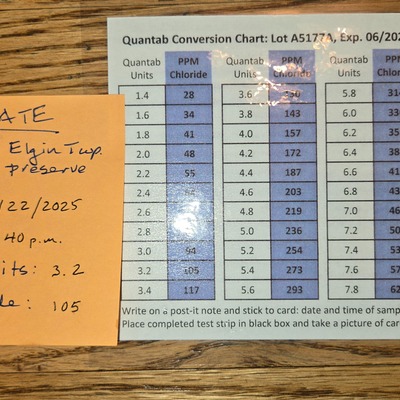 ATE
Elgin Twp.
Preserve
/22/2025
40 p.m.
its: 3.2
de: 105
Quantab Conversion Chart: Lot A5177A, Exp. 06/202
Quantab Units PPM Chloride Quantab Units PPM Chloride Quantab Units PPM Chlorid
1.4 28 3.6 5.8 31
1.6 34 3.8 143 6.0 33
1.8 41 4.0 157 6.2 35
2.0 48 4.2 172 6.4 38
2.2 55 4.4 187 6.6 41
2.4 4.6 203 6.8 43
2.6 4.8 219 7.0 46
2.8 5.0 236 7.2 50
3.0 94 5.2 254 7.4 53
3.2 105 5.4 273 7.6 57
3.4 117 5.6 293 7.8 62
Write on a post-it note and stick to card: date and time of samp
Place completed test strip in black box and take a picture of car